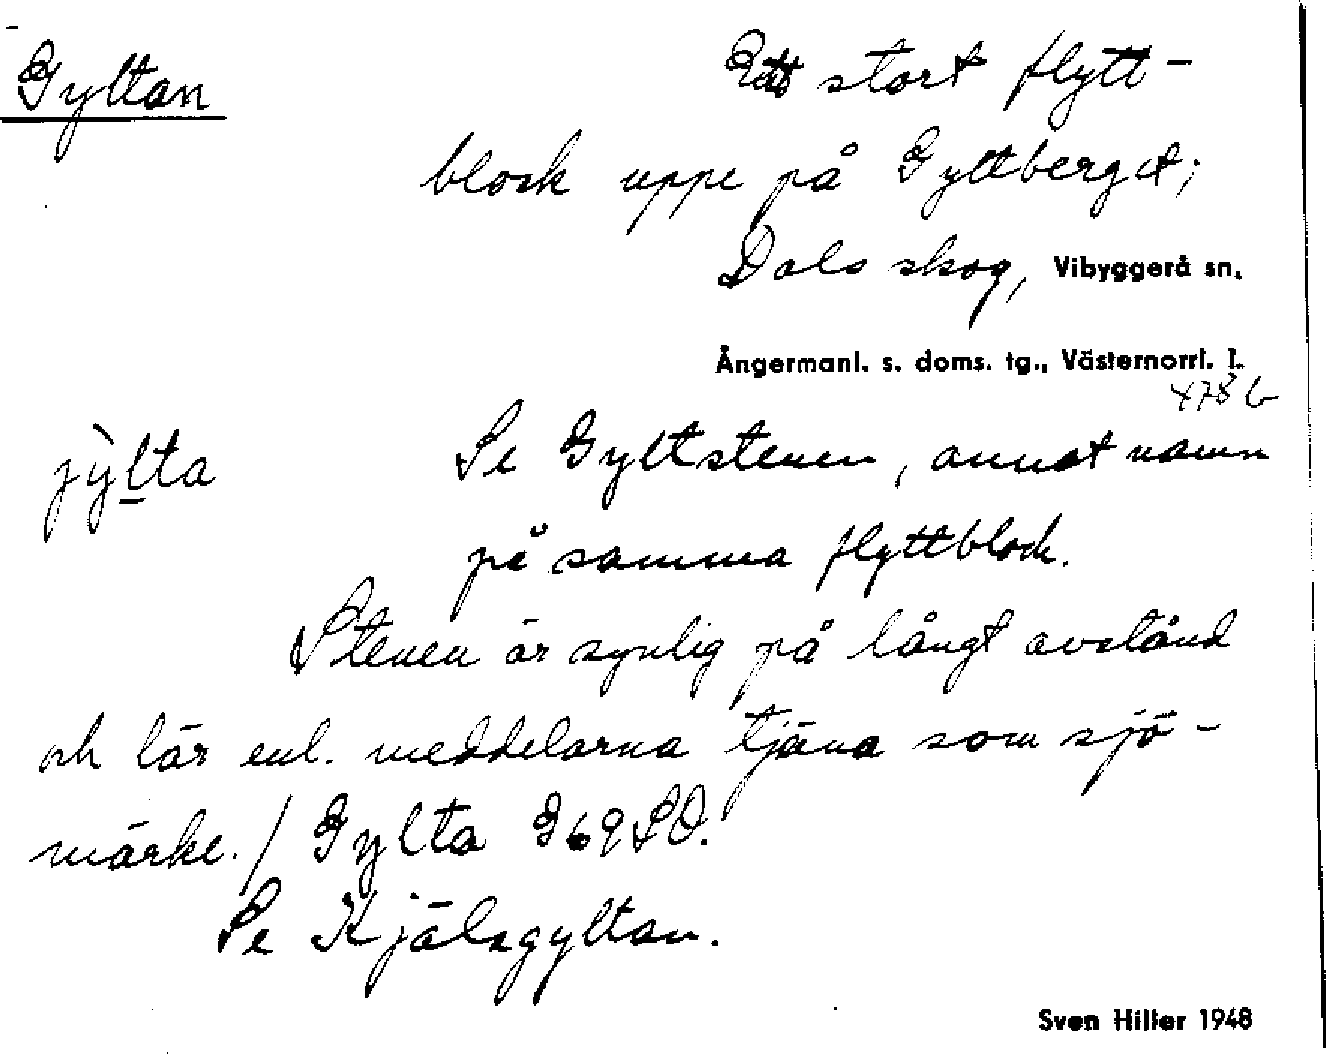 Gyltan
Ett stort flytt-
block uppe på Gyltberget;
Dals skog, Vibyggerå sn.
Ångermanl. s. doms. tg., Västernorrl. l.
478 b
jỳl̲ta
Se Gyltstenen, annat namn
på samma flyttblock.
Stenen är synlig på långt avstånd
och lär enl. meddelarna tjäna som sjö-
märke. / Gylta G69SO.
Se Kjälsgyltan.
Sven Hiller 1948